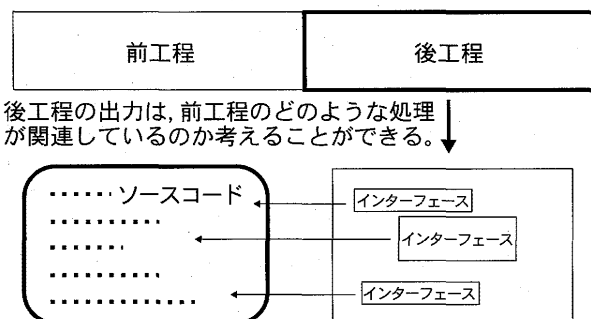 前工程
後工程
後工程の出力は,前工程のどのような処理
が関連しているのか考えることができる。
ソースコード
インターフェース
インターフェース
インターフェース